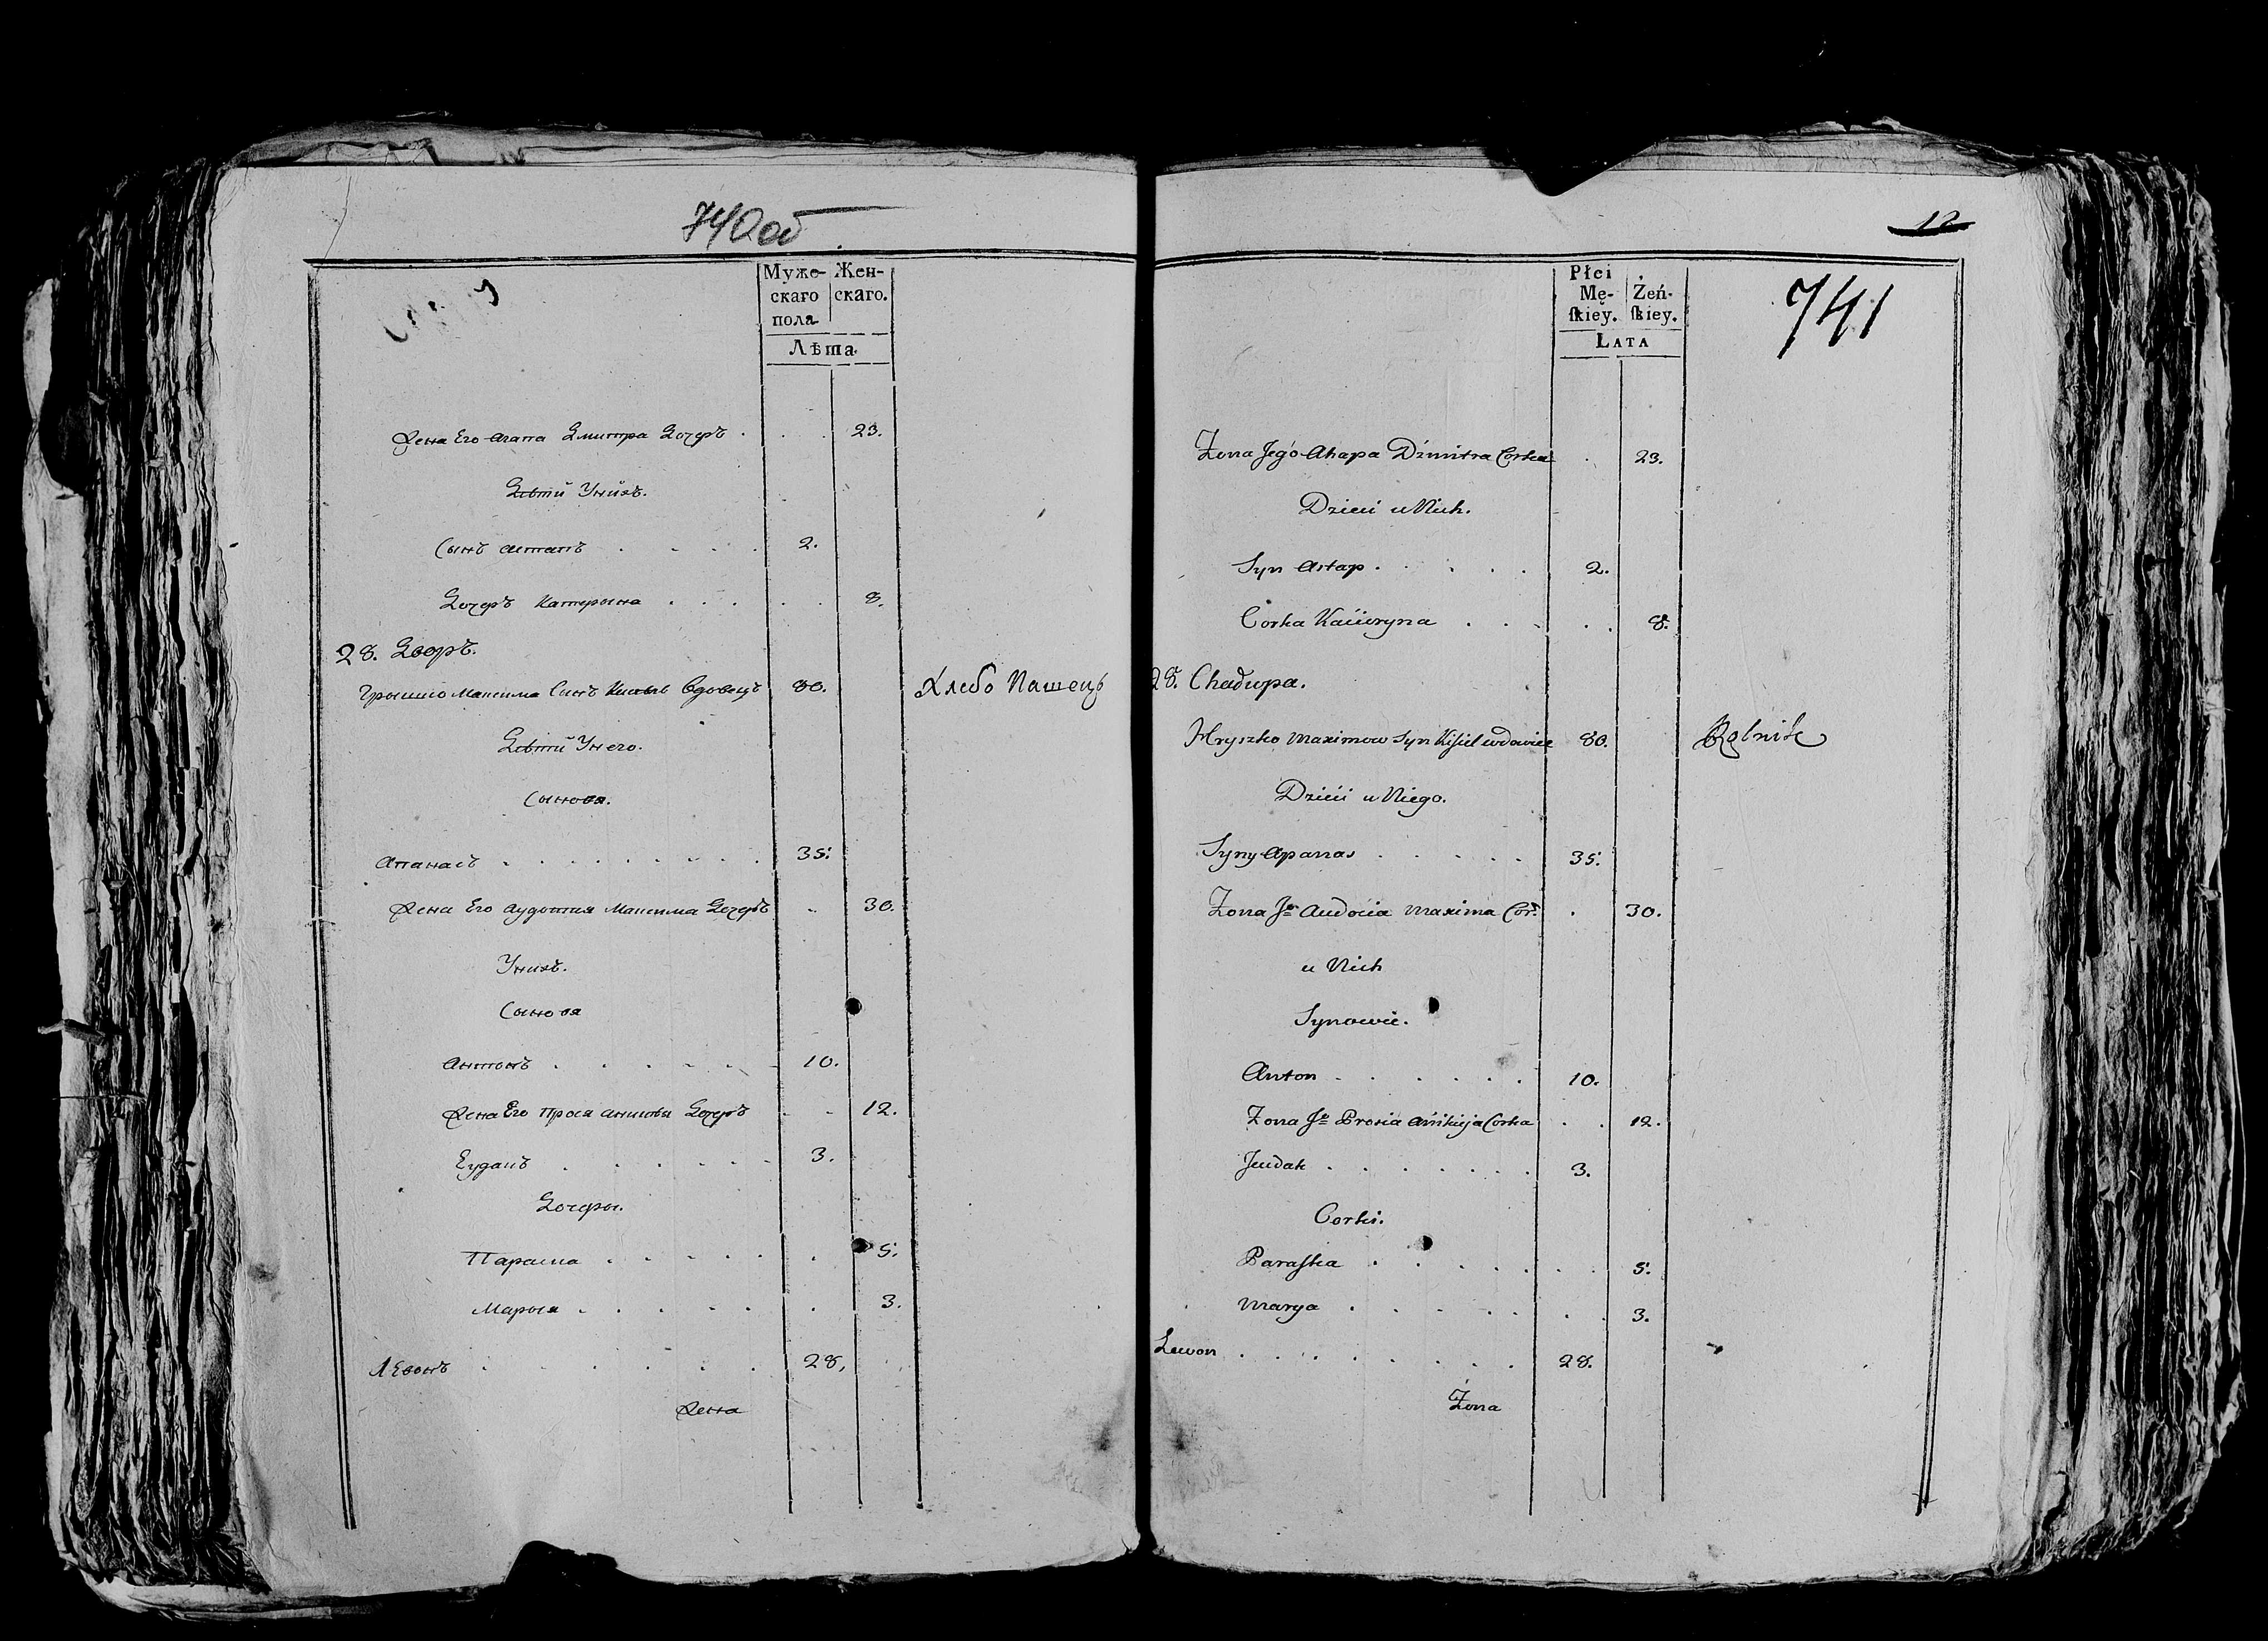 740об
Муже- Жен-
скаго скаго.
пола
Лѣта
Жена Его Агапа Дмитра Дочеръ . . . 23.
Дѣти Унихъ.
Сынъ Астапъ . . . . 2.
Дочеръ Катерына . . . . . 8.
28. Дворъ.
Грышко Максима Сынъ Кисель Вдовецъ 80. Хлебо Пашецъ
Дѣти Унего.
Сыновя.
Апанасъ . . . . . . . . . 35.
Жена Его Аудотия Максима Дочеръ . 30.
Унихъ.
Сыновя
Антонъ . . . . . . 10.
Жена Его Прося Аникѣя Дочеръ . . 12.
Еудакъ . . . . . . 3.
Дочеры.
Параска . . . . . . 5.
Марыя . . . . . . 3.
Левонъ . . . . . . 28.
Жена
12
741
Płci
Mę- Żeń-
ſkiey. ſkiey.
LATA
Żona Jego Ahapa Dźmitra Corka . 23.
Dzieci u Nich.
Syn Astap . . . . . 2.
Corka Kacieryna . . . . . 8.
28. Chałupa.
Hryszko Maximow Syn Kisiel wdowiec 80. Rolnik
Dzieci u Niego.
Syny Apanas . . . . . 35.
Żona Jo Audocia Maxima Cor: . 30.
u Nich
Synowie.
Anton . . . . . . 10.
Żona Jo Prosia Anikieja Corka . . 12.
Jeudak . . . . . . . 3.
Corki.
Paraſka . . . . . . . 5.
Marya . . . . . . . 3.
Lewon . . . . . . . . 28.
Żona